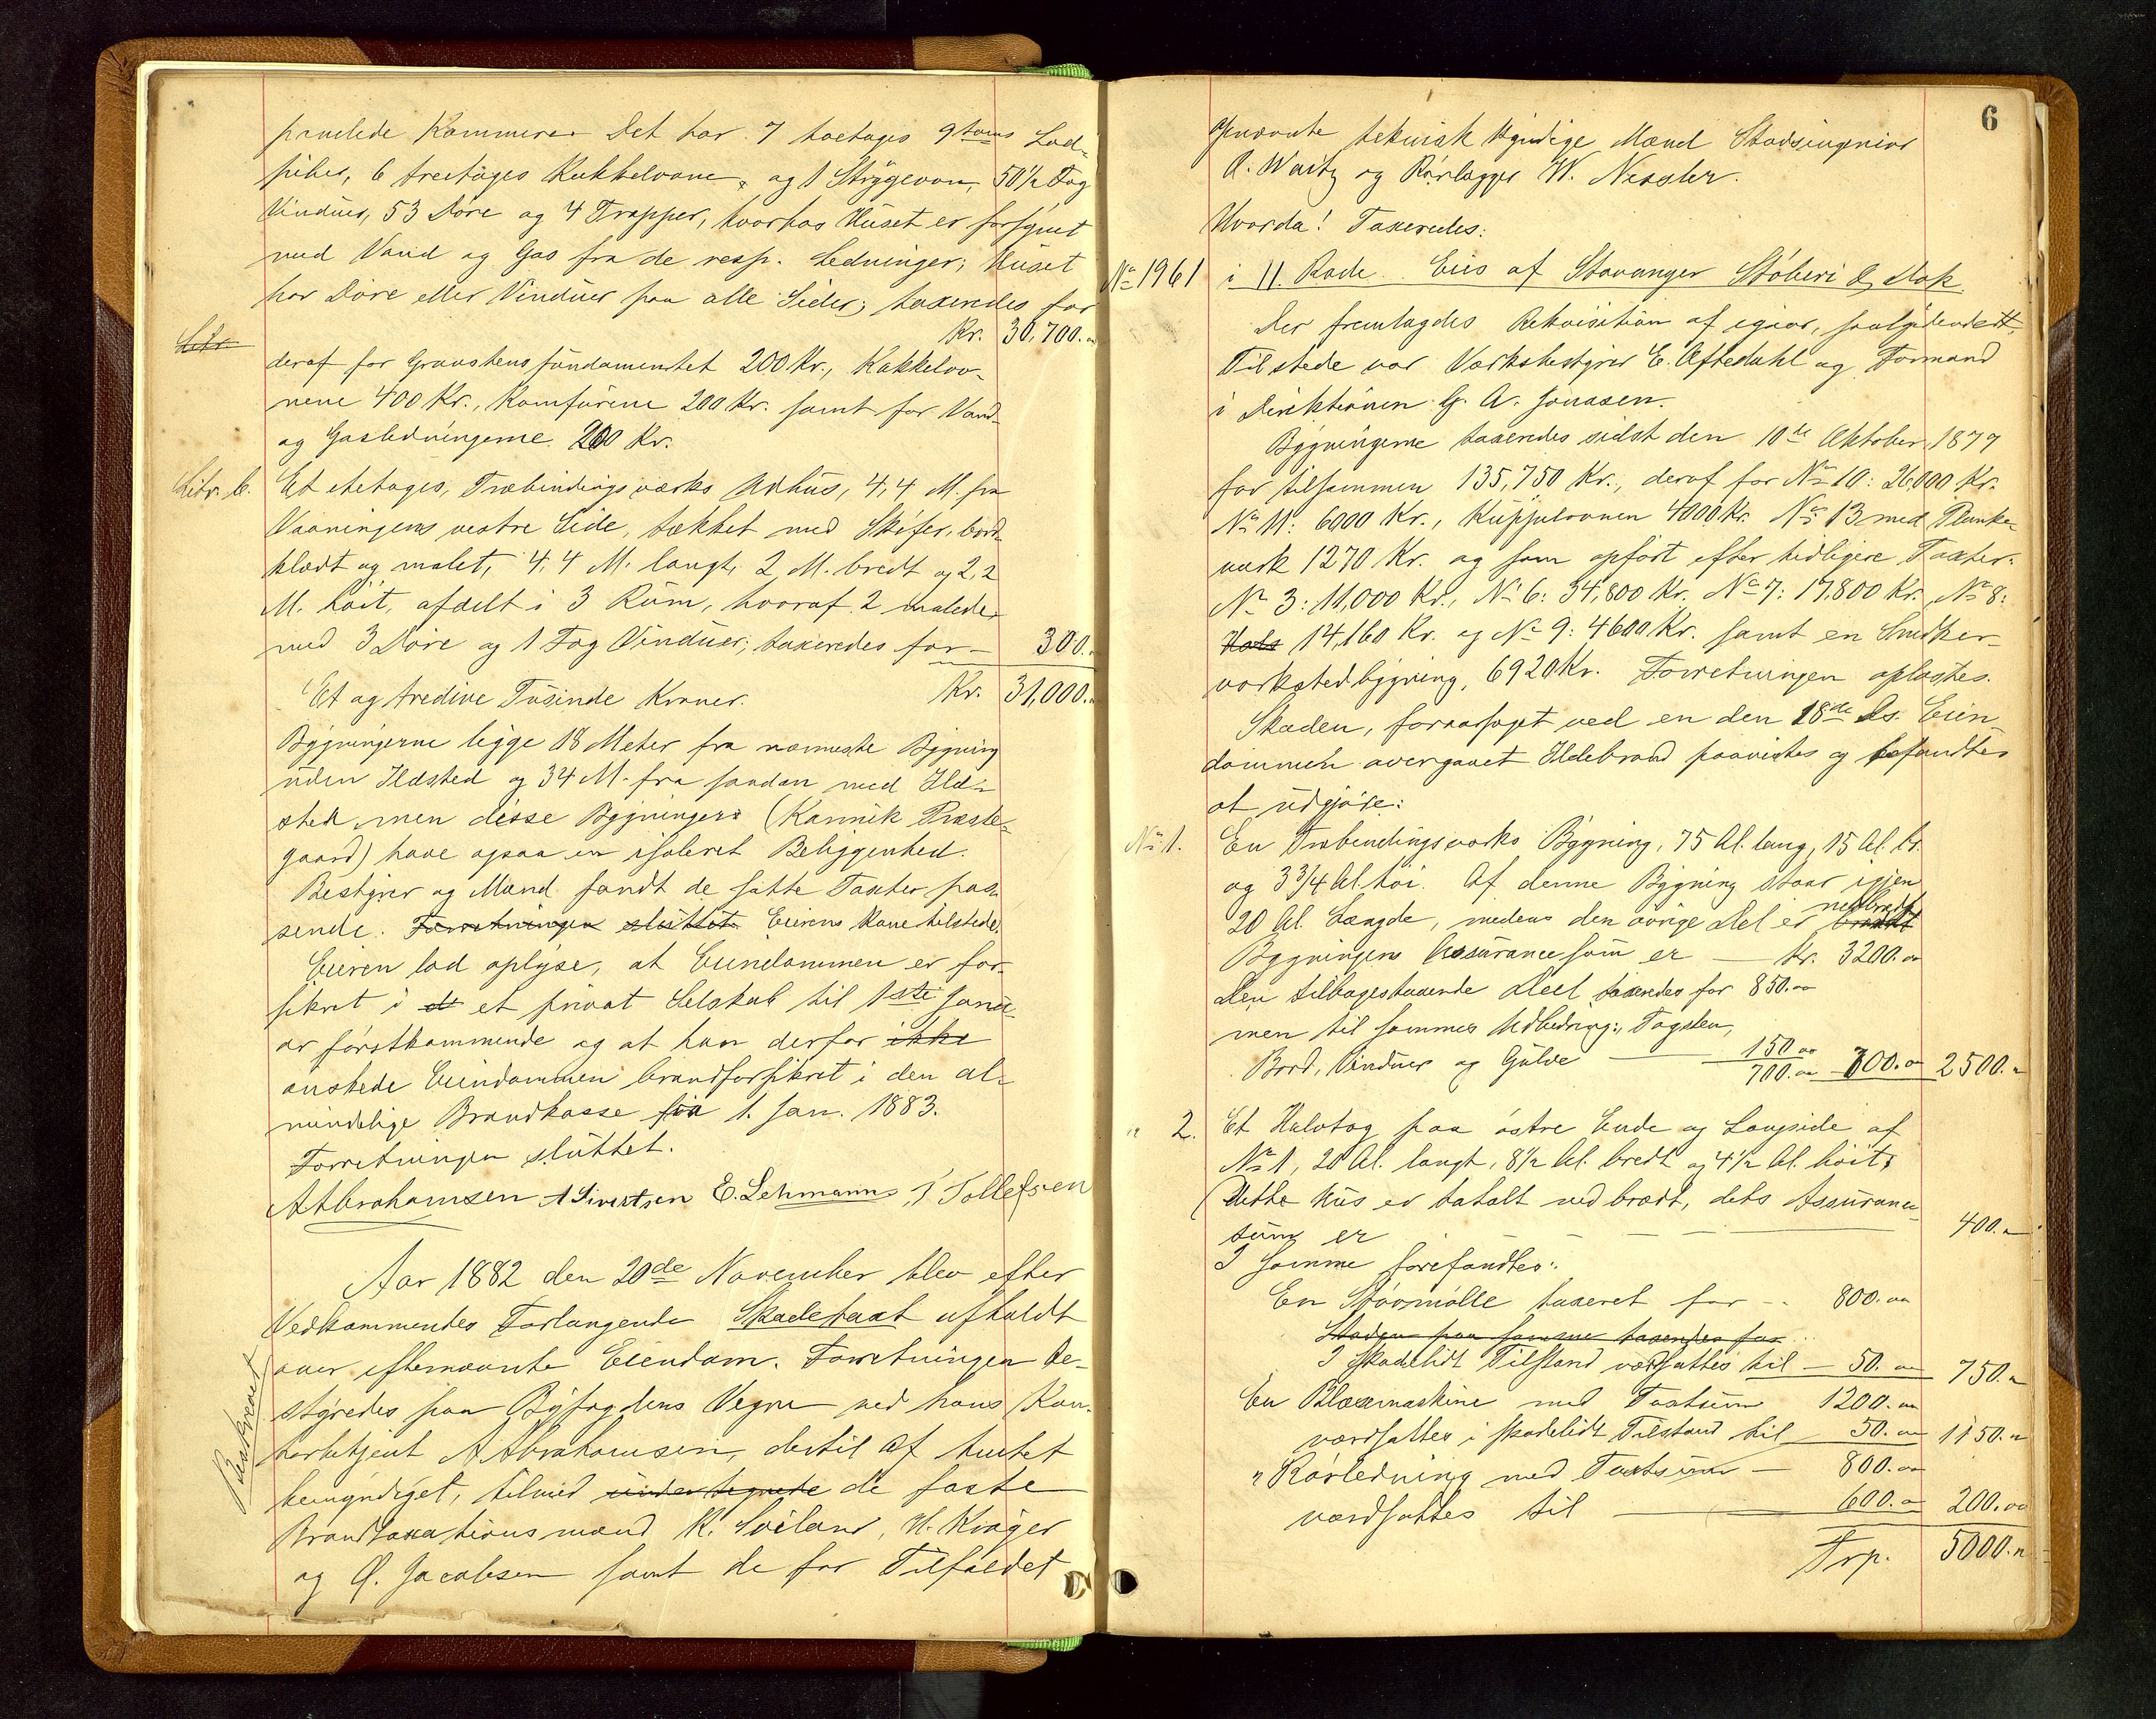 panelede Kammere. Det har 7 toetages 9 toms Lod-
piber, 6 treetages Kakkelovne, og 1 Strygeovn, 50½ Fag
Vinduer, 53 Døre og 4 Trapper, hvorhos Huset er forsynet
med Vand og Gas fra de resp. Ledninger; Huset
har Døre eller Vinduer paa alle Sider; taxeredes for
Litr.
Kr. 30,700.
deraf for Graastensfundamentet 200 Kr., Kakkelov-
nene 400 Kr., Komfurene 200 Kr. samt for Vand-
og Gasledningerne 200 Kr.
Litr. b. Et etetages, Træbindingsværks Udhus, 4,4 M. fra
Vaaningens vestre Side, tækket med Skifer, bord-
klædt og malet, 4,4 M. langt, 2 M. bredt og 2,2
M. høit, afdelt i 3 Rum, hvoraf 2 malede,
med 3 Døre og 1 Fag Vinduer; taxeredes for — 300.
Et og tredive Tusinde Kroner. Kr. 31,000.
Bygningerne ligge 18 Meter fra nærmeste Bygning
uden Ildsted og 34 M. fra saadan med Ild-
sted men disse Bygninger (Kannik Præste-
gaard) have ogsaa en isoleret Beliggenhed.
Bestyrer og Mænd fandt de satte Taxter pas-
sende. Forretningen sluttet. Eierens Kone tilstede.
Eieren lod oplyse, at Eiendommen er for-
sikret i et et privat Selskab til 1ste Janu-
ar førstkommende og at han derfor ikke
ønskede Eiendommen brandforsikret i den al-
mindelige Brandkasse fra 1. Jan. 1883.
Forretningen sluttet.
A Abrahamsen A Sivertsen E. Lehmann T Tollefsen
Aar 1882 den 20de November blev efter
Vedkommendes Forlangende Skadetaxt afholdt
over efternævnte Eiendom. Forretningen be-
styredes paa Byfogdens Vegne ved hans Kon-
torbetjent A Abrahamsen, dertil af Amtet
bemyndiget, tilmed undertegnede de faste
Brandtaxationsmænd K. Soiland, H. Krøger
og O. Jacobsen samt de for Tilfældet
Beskrevet
6
opnævnte teknisk kyndige Mænd Stadsingeniør
R. Waitz og Rørlægger W. Nessler.
Hvorda! Taxeredes:
No 1961 i 11. Rode. Eies af Stavanger Støberi & Dok
Der fremlagdes Rekvisition af igaar, saalydende
Tilstede var Værksbestyrer E. Aftedahl og Formand
i Direktionen G. A. Jonasen.
Bygningerne taxeredes sidst den 10de Oktober 1877
for tilsammen 135,750 Kr., deraf for No 10: 26,000 Kr.
No 11: 6000 Kr., Kuppelovnen 4000 Kr. No 13 med Planke-
værk 1270 Kr. og som opført efter tidligere Taxter:
No 3: 11,000 Kr., No 6: 34,800 Kr., No 7: 17,800 Kr., No 8:
14,160 Kr. og No 9: 4600 Kr. samt en Snedker-
værkstedbygning, 6920 Kr. Forretningen oplæstes.
Skaden, foraarsaget ved en den 18de Ds. Eien-
dommen overgaaet Ildebrand paavistes og befandtes
at udgjøre:
No 1. En Træbindingsværks Bygning, 75 Al. lang, 15 Al. br.
og 3¾ Al. høi. Af denne Bygning staar igjen
20 Al. Længde, medens den øvrige Del er brændt nedbrændt
Bygningens Assurancesum er — Kr. 3200.00
Den tilbagestaaende Deel taxeredes for 850.00
men til sammes Udbedring: Tagsten,
Bord, Vinduer og Gulve — 150.00
700.00 700.00 2500.
" 2. Et Halvtag paa østre Ende og Langside af
No 1, 20 Al. langt, 8½ Al. bredt og 4½ Al. høit.
Dette Hus er totalt nedbrændt, dets Assurance-
sum er — — — 400.
I samme forefandtes:
En Støvmølle taxeret for — 800.00
Skaden paa samme taxeredes for
I skadelidt Tilstand værdsattes til — 50.00 750.
En Blæsemaskine med Taxtsum 1200.00
værdsattes i skadelidt Tilstand til 50.00 1150.
" Rørledning med Taxtsum — 800.00
værdsattes til — 600.00 200.00
Trp. 5000.